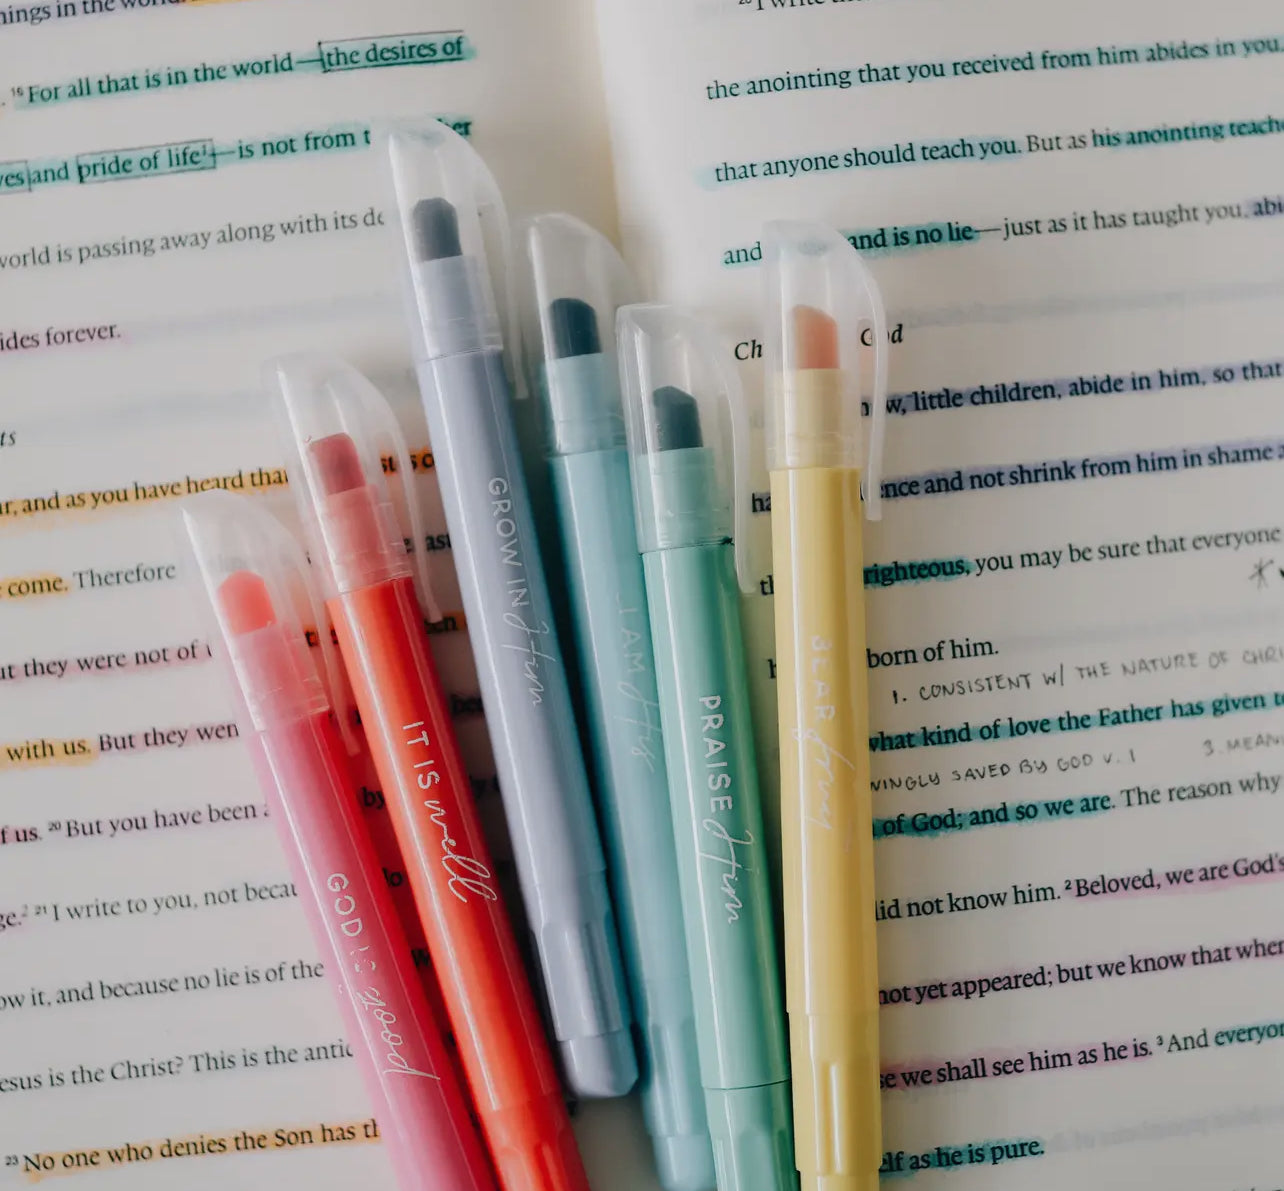 things in the world.
. ¹⁶ For all that is in the world—the desires of
and pride of life¹—is not from
world is passing away along with its
forever.
and as you have heard that
come. Therefore
they were not of
with us. But they
of us. ²⁰ But you have been
²¹ I write to you, not
it, and because no lie is of the
is the Christ? This is the
²³ No one who denies the Son has
GOD IS good
IT IS well
GROW IN Him
I AM His
PRAISE Him
BEAR fruit
I write
the anointing that you received from him abides in you,
that anyone should teach you. But as his anointing
and and is no lie—just as it has taught you,
God
little children, abide in him, so that
and not shrink from him in shame
righteous, you may be sure that everyone
born of him.
1. CONSISTENT W/ THE NATURE OF
what kind of love the Father has given
SAVED BY GOD V. 1 3.
of God; and so we are. The reason why
did not know him. ² Beloved, we are God's
not yet appeared; but we know that when
we shall see him as he is. ³ And
as he is pure.